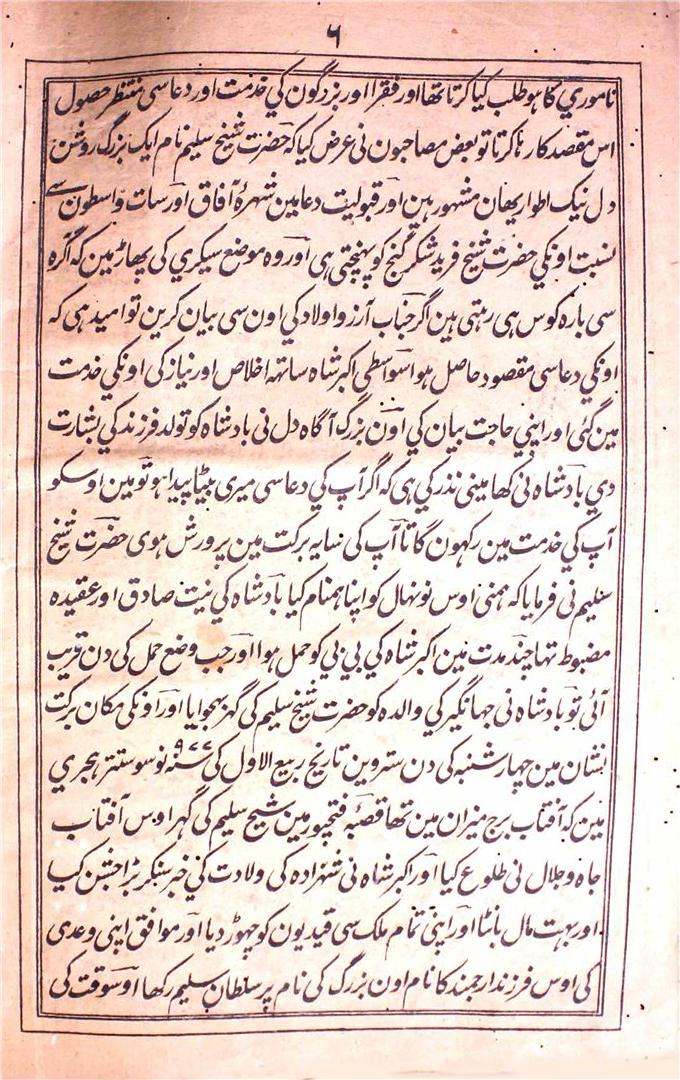 ٦
ناموري کا ہو طلب کیا کرتا تھا اور فقرا اور بزرگون کي خدمت اور دعا سی منتظر حصول
اس مقصد کا رہا کرتا تو بعض مصاحبون نی عرض کیا کہ حضرت شیخ سلیم نام ایک بزرگ روشن
دل نیک اطوار یھان مشہور ہین اور قبولیت دعا مین شہرۂ آفاق اور سات واسطون سے
نسبت اونکي حضرت شیخ فرید شکر گنج کو پہنچتی ہی اور وہ موضع سیکري کی پھاڑ مین کہ آگرہ
سی بارہ کوس ہی رہتی ہین اگر جناب آرزو اولاد کي اون سی بیان کرین تو امید ہی کہ
اونکي دعا سی مقصود حاصل ہو اسواسطی اکبر شاہ ساتھہ اخلاص اور نیاز کی اونکي خدمت
مین گئی اور اپني حاجت بیان کي اون بزرگ آگاہ دل نی بادشاہ کو تولد فرزند کي بشارت
دي بادشاہ نی کھا مینی نذر کي ہی کہ اگر آپ کي دعا سی میری بیٹا پیدا ہو تو مین اوسکو
آپ کي خدمت مین رکہون گا تا آپ کی سایہ برکت مین پرورش ہوی حضرت شیخ
سلیم نی فرمایا کہ ہمنی اوس نونہال کو اپنا ہمنام کیا بادشاہ کي نیت صادق اور عقیدہ
مضبوط تہا چند مدت مین اکبر شاہ کي بي بي کو حمل ہوا اور جب وضع حمل کی دن قریب
آئی تو بادشاہ نی جہانگیر کي والدہ کو حضرت شیخ سلیم کی گہر بہجوایا اور اونکی مکان برکت
نشان مین چہار شنبہ کی دن ستروین تاریخ ربیع الاول کی ۹۷۷ سنہ نو سو ستتر ہجري
مین کہ آفتاب برج میزان مین تھا قصبہ فتحپور مین شیخ سلیم کی گہر اوس آفتاب
جاہ و جلال نی طلوع کیا اور اکبر شاہ نی شہزادہ کی ولادت کي خبر سنکر بڑا جشن کیا
اور بہت مال بانٹا اور اپنی تمام ملک سی قیدیون کو چھوڑ دیا اور موافق اپنی وعدی
کی اوس فرزند ارجمند کا نام اون بزرگ کی نام پر سلطان سلیم رکھا اوسوقت کی